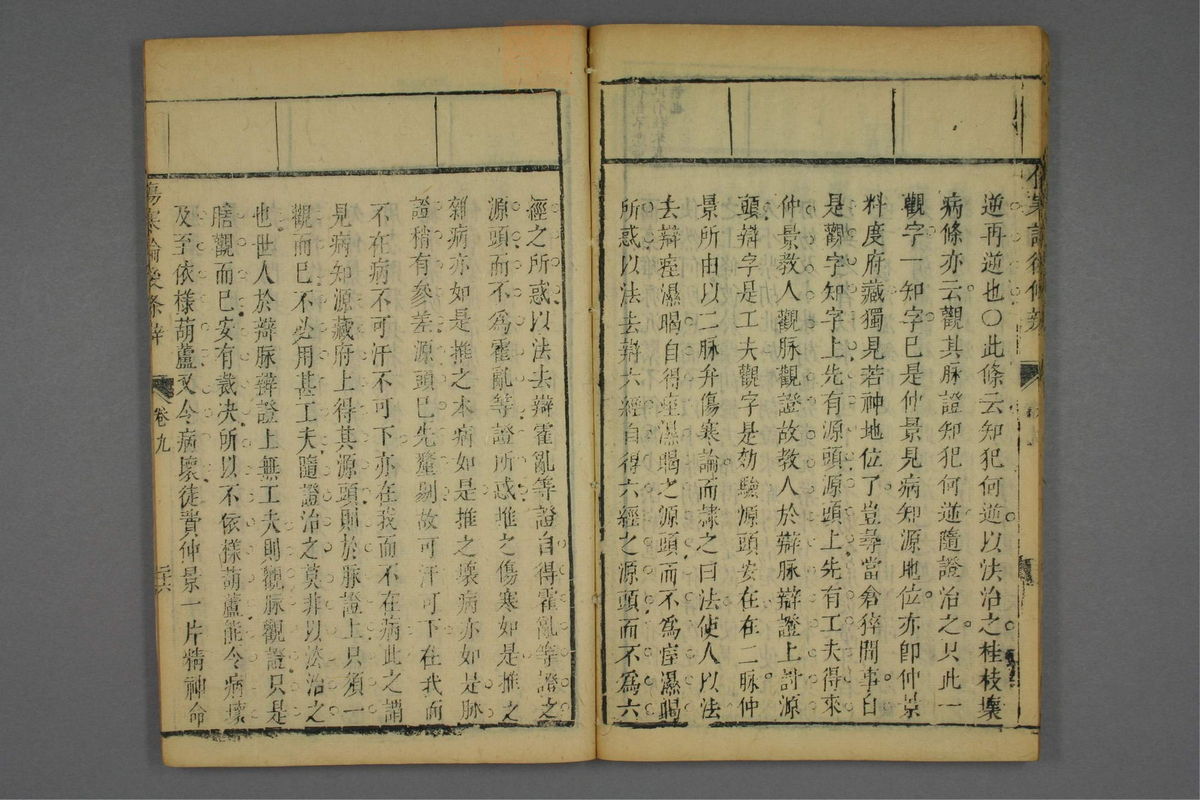 逆再逆也〇此條云知犯何逆以法治之桂枝壞
病條亦云觀其脉證知犯何逆隨證治之只此一
觀字一知字已是仲景見病知源地位亦卽仲景
料度府藏獨見若神地位了豈尋當倉猝間事曰
是觀字知字上先有源頭源頭上先有工夫得來
仲景教人觀脉觀證故教人於辯脉辯證上討源
頭辯字是工夫觀字是効驗源頭安在在二脉仲
景所由以二脉弁傷寒論而隷之曰法使人以法
去辯痓濕暍自得痓濕暍之源頭而不為痓濕暍
所惑以法去辯六經自得六經之源頭而不為六
經之所惑以法去辯霍亂等證自得霍亂等證之
源頭而不為霍亂等證所惑推之傷寒如是推之
雜病亦如是推之本病如是推之壞病亦如是脉
證稍有參差源頭已先釐剔故可汗可下在我而
不在病不可汗不可下亦在我而不在病此之謂
見病知源藏府上得其源頭則於脉證上只須一
觀而已不必用甚工夫隨證治之莫非以法治之
也世人於辯脉辯證上無工夫則觀脉觀證只是
瞎觀而已安有裁决所以不依樣葫蘆能令病壞
及至依樣葫蘆又令病壞徒費仲景一片精神命
傷寒論後条辯 卷九 二六